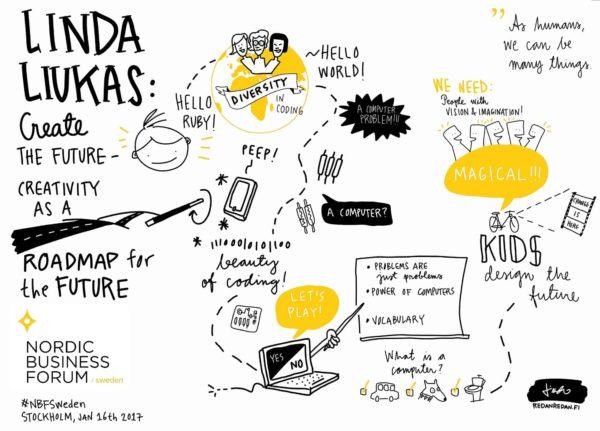 LINDA
LIUKAS:
Create
THE FUTURE
CREATIVITY
AS A
ROADMAP for
the FUTURE
NORDIC
BUSINESS
FORUM / sweden
#NBFSweden
STOCKHOLM, JAN 16th 2017
DIVERSITY
IN
CODING
~HELLO
WORLD!
HELLO
RUBY!
PEEP!
A COMPUTER
PROBLEM!!!
A COMPUTER?
11100010101100
beauty
of coding!
LET'S
PLAY!
YES
NO
• PROBLEMS ARE
just problems
• POWER OF COMPUTERS
• VOCABULARY
What is a
computer?
” As humans,
we can be
many things.
WE NEED:
People with
VISION & IMAGINATION!
MAGICAL!!!
CHANGE
IS
HERE
KIDS
design the
future
REDANREDAN.FI